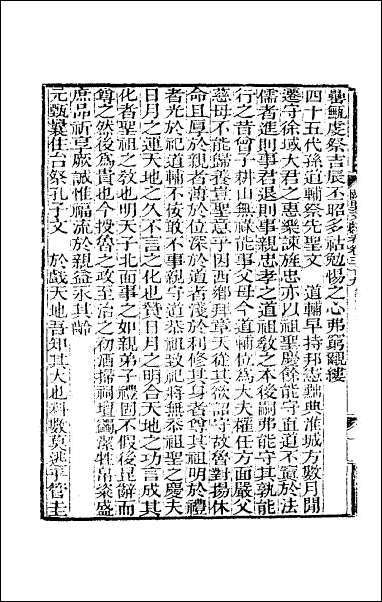 罍甒虔祭吉辰丕昭多祜勉惕之心弗窮觀縷
四十五代孫道輔祭先聖文　道輔早持邦憲難典淮城方數月閒
遷守徐域大君之惠樂諫旌忠亦以祖聖慶餘能守直道不實於法
儒者進則事君退則事親忠孝之道祖敎之本後嗣弗能守其孰能
行之昔曾子耕山無祿能事父母今道輔位為大夫權任方面嚴父
慈母不能歸養豈聖意乎因西鄕拜章天從其欲詔守故魯對揚休
命且厚於親者薄於位深於道者淺於利修其身者尊其祖明於禮
者光於祀道輔不佞敢不事親守道恭祖致祀將無忝祖聖之慶夫
日月之運天地之久不言之化也贊日月之明合天地之功言成其
化者聖祖之敎也明天子北面事之如親弟子禮固不假後昆辭而
尊之然後為貴也今授魯之政至治之初酒掃祠壇蠲潔牲帛粢盛
庶品祈享厥誠惟福流於親益永其齡
元甄囊住台祭孔子文　於戲天地吾知其大也科數莫逃乎管圭